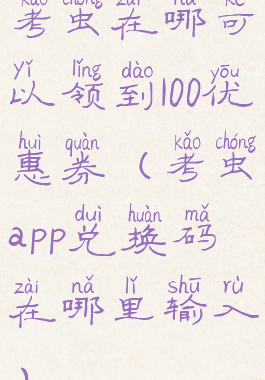 kǎo chóng zài nǎ kě
考虫在哪可
yǐ lǐng dào yōu
以领到100优
huì quàn kǎo chóng
惠券（考虫
duì huàn mǎ
app兑换码
zài nǎ lǐ shū rù
在哪里输入
）